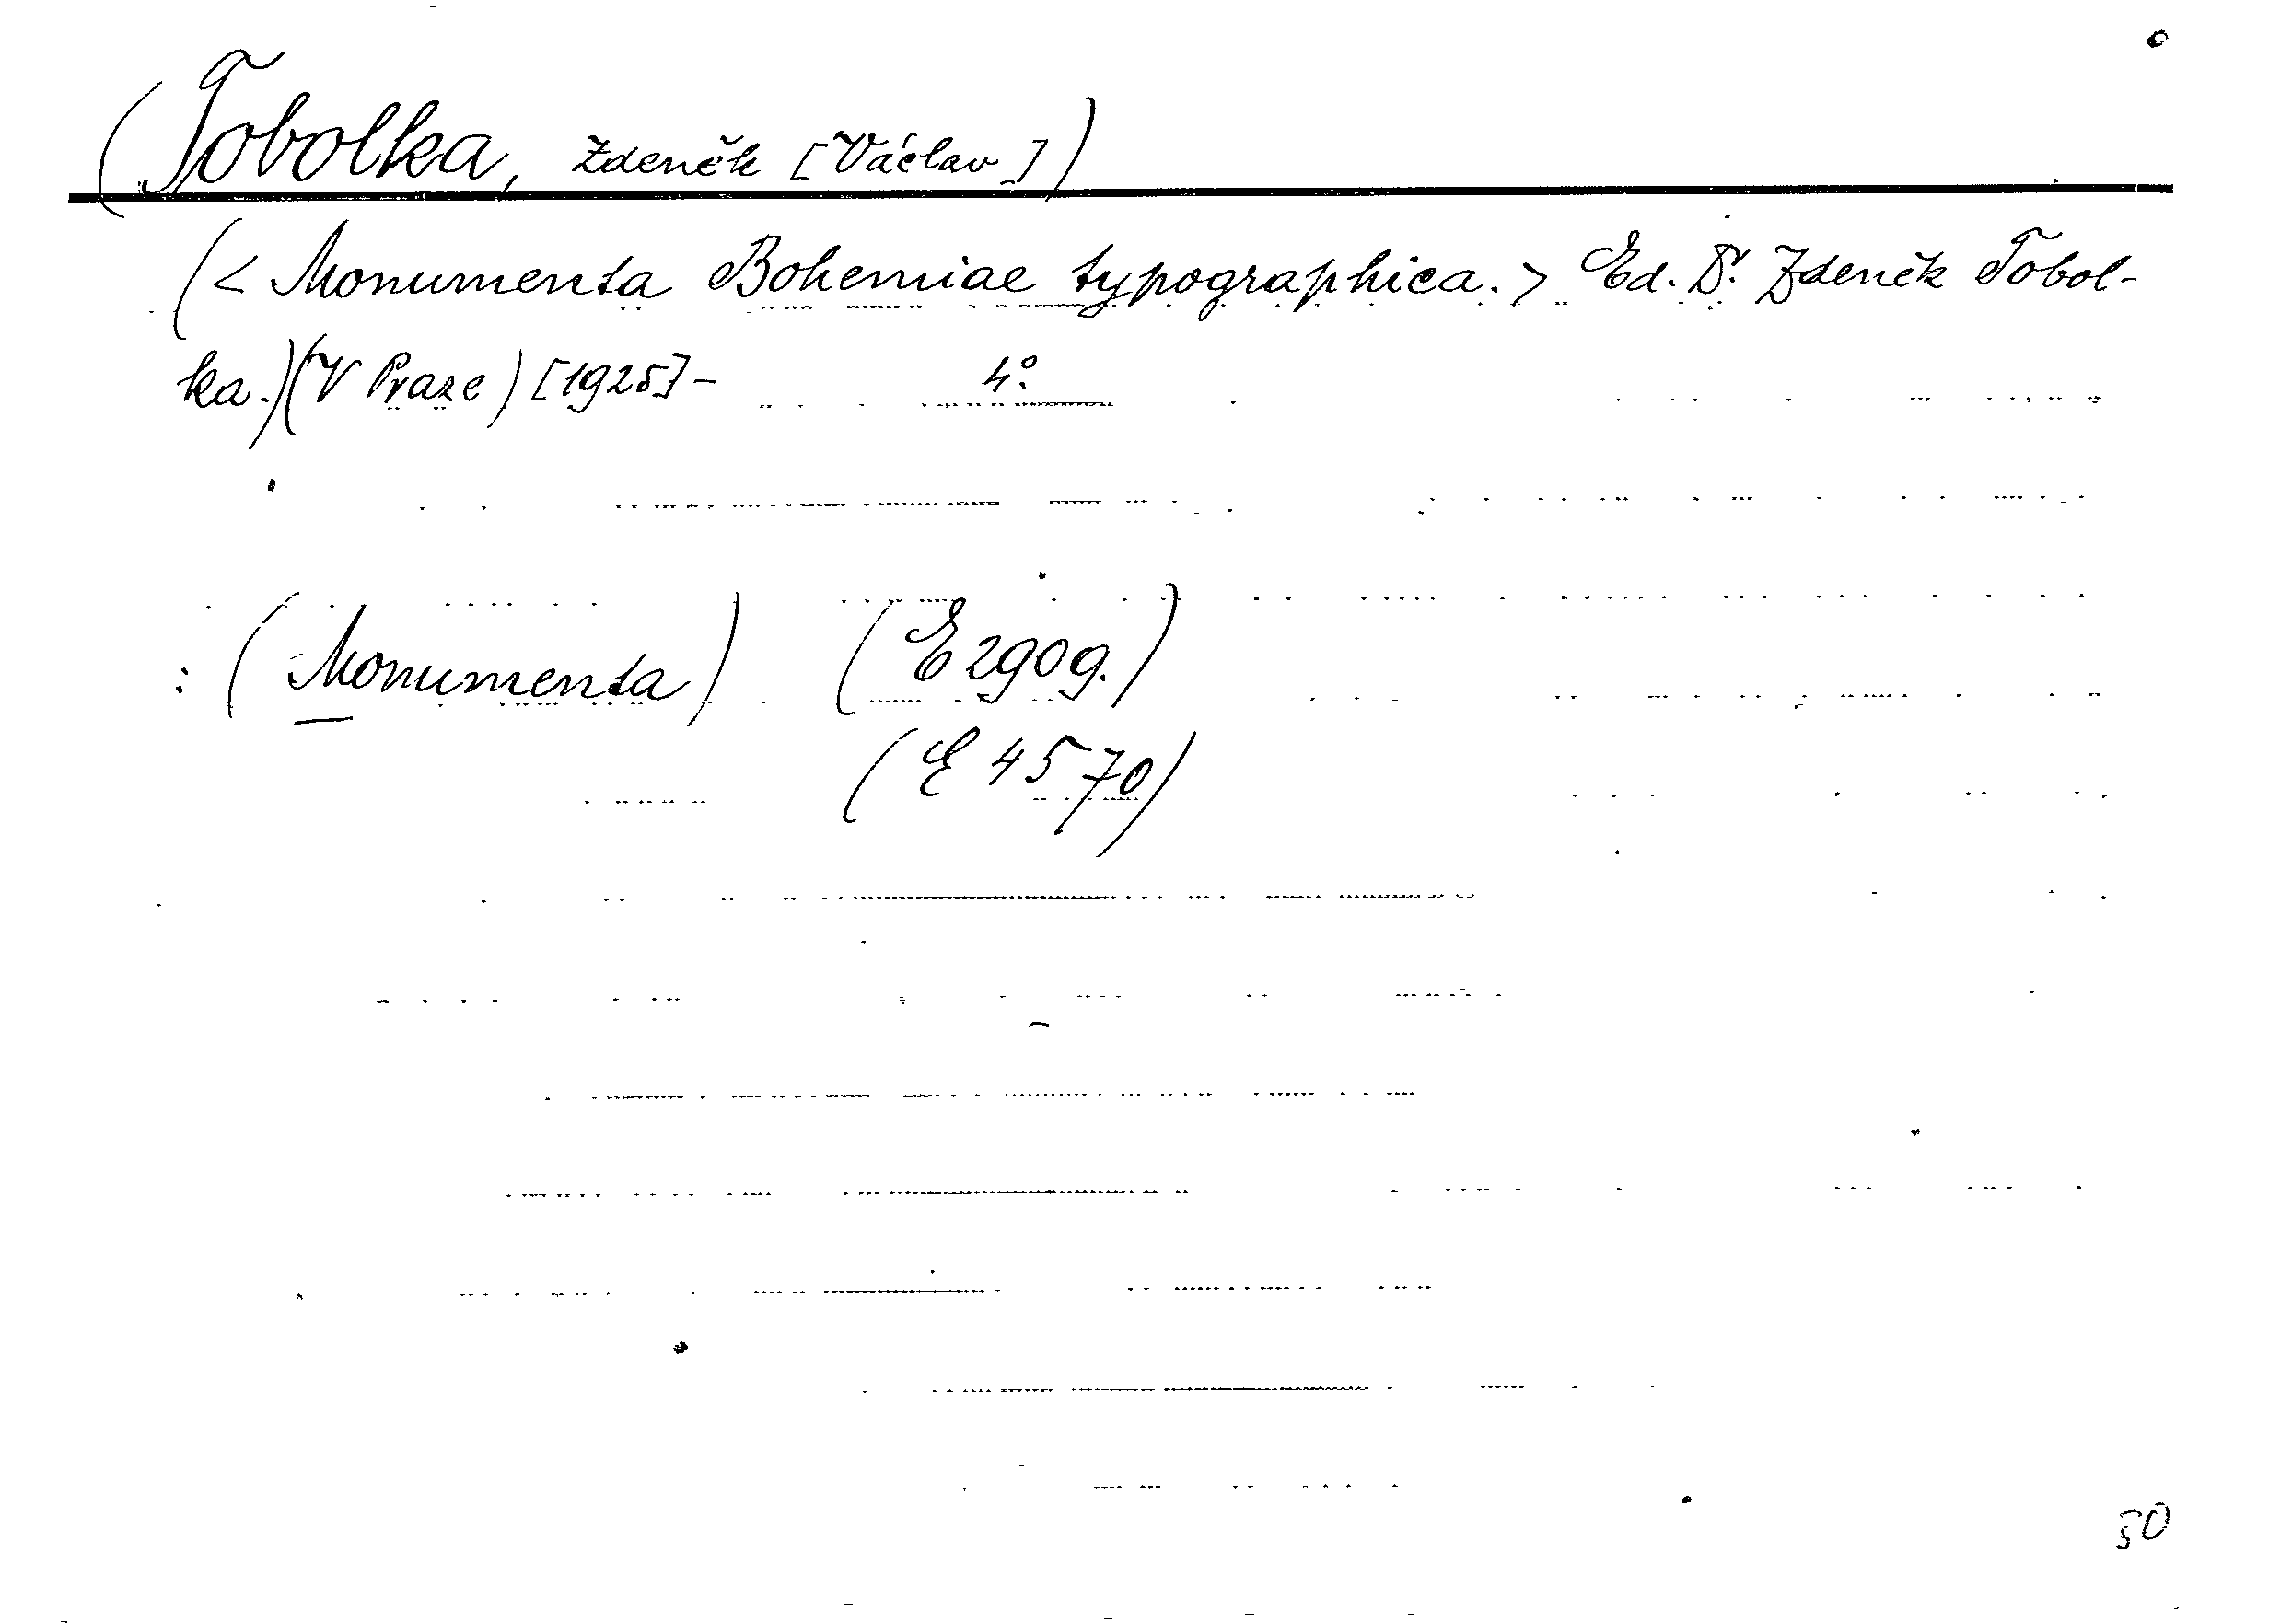 (Tobolka, Zdeněk [Václav])
(< Monumenta Bohemiae typographica. > Ed. Dr. Zdeněk Tobol-
ka.) (V Praze) [1925]- 4°.
: (Monumenta) (E 2909.)
(E 4570)
50